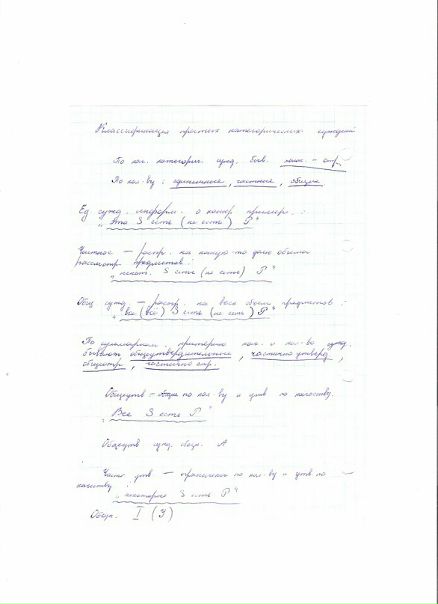 Классификация простых категорических суждений
По кач. категорич. сужд. быв.
По кол-ву : единичные, частные, общие
Ед сужд. информ. о конкр.
„ Это S есть (не есть) P "
Частное — распр. на какую-то долю объема
предметов :
„ некот. S есть (не есть) P "
Общ сужд. — распр. на весь объем предметов :
„ Все (всё) S есть (не есть) P "
По кач. и кол-во сужд.
бывают общеутвердительные, частично утверд,
общеотр, частично отр.
Общеутв - общие по кол-ву и утв по качеству.
„ Все S есть P "
Общеутв сужд. обозн. A
Частно утв — по кол-ву и утв по
качеству :
„ некоторые S есть P "
Обозн. I (У)